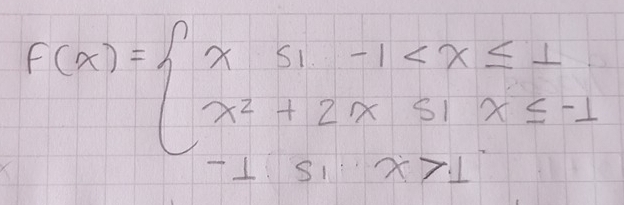 f(x) = { x si -1 < x ≤ 1
x² + 2x si x ≤ -1
-1 si x > 1